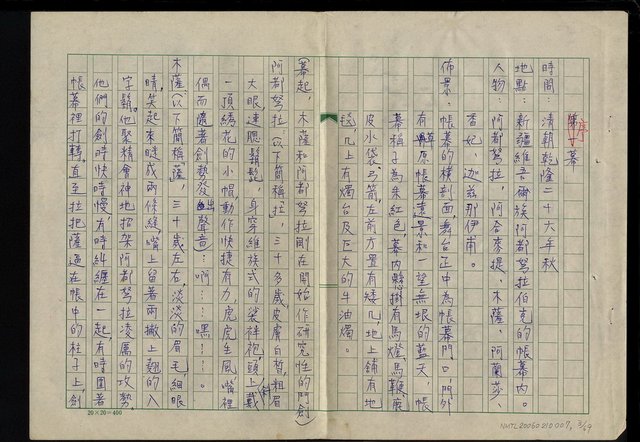 序幕
時間：清朝乾隆二十六年秋
地點：新疆維吾爾族阿都弩拉伯克的帳幕內。
人物：阿都弩拉，阿合來提、木薩、阿蘭莎、
香妃、迦茲那伊甫。
佈景：帳幕的橫剖面，舞台正中為帳幕門口，門外
有草原帳幕遠景和一望無垠的藍天，帳
幕稱子為朱紅色，幕內懸掛有馬燈、馬鞭、
皮水袋、弓箭，左前方置有矮几，地上鋪有地
毯，几上有燭台及巨大的牛油燭。
幕起，木薩和阿都弩拉剛在開始作研究性的鬥劍
阿都弩拉（以下簡稱拉），三十多歲，皮膚白皙，粗眉
大眼連腮鬍鬚，身穿維族式的袷袢袍，頭上戴
一頂綉花的小帽，動作快捷有力，虎虎生風，嘴裡
偶而隨著劍勢發出聲音：啊……嘿……。
木薩（以下簡稱薩），三十歲左右，淡淡的眉毛細眼
睛，笑起來瞇成兩條縫，嘴上留著兩撇上翹的八
字鬍。他聚精會神地招架阿都弩拉凌厲的攻勢，
他們的劍時快時慢，有時糾纏在一起，有時圍著
帳幕裡打轉，直至拉把薩逼在帳中的柱子上，劍
20×20=400
NMTL20050210007, 3/29